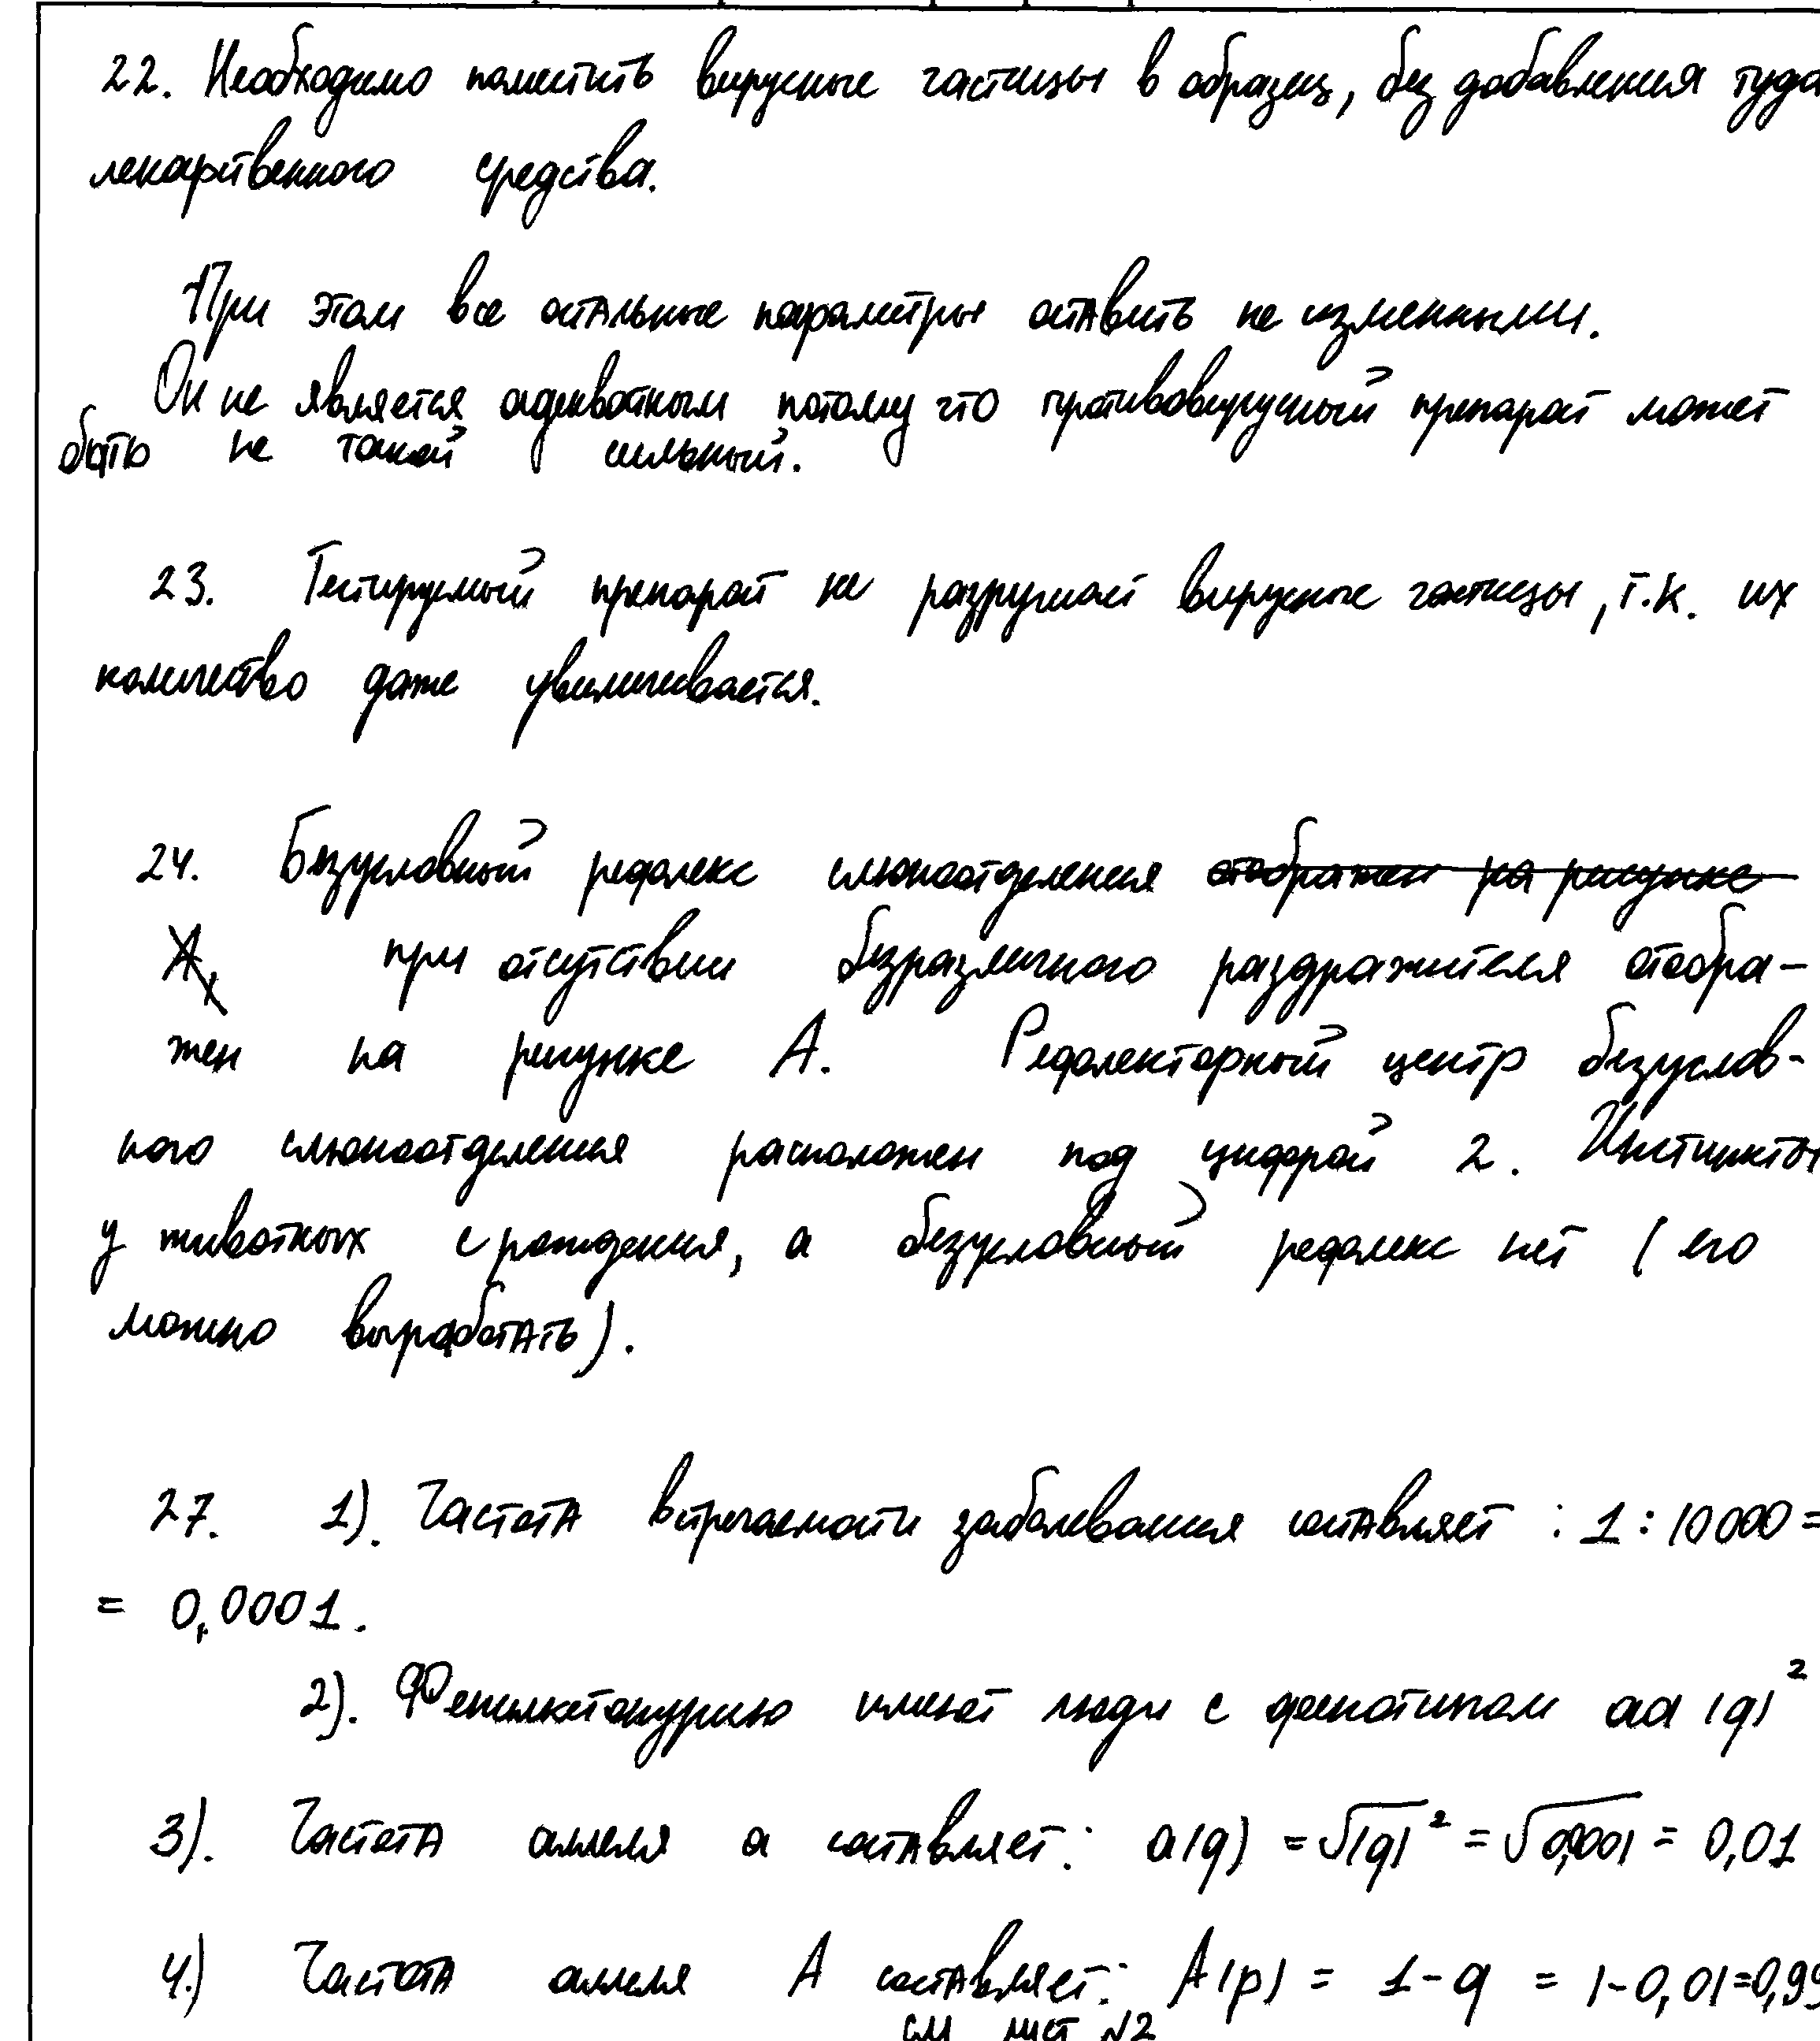 22. Необходимо поместить вирусные частицы в образец, без добавления туда
лекарственного средства.
При этом все остальные параметры оставить не изменными.
Он не является адекватным потому что противовирусный препарат может
быть не такой сильный.
23. Тестируемый препарат не разрушает вирусные частицы, т.к. их
количество даже увеличивается.
24. Безусловный рефлекс слюноотделения отображен на рисунке
А, при отсутствии безразличного раздражителя отобра-
жен на рисунке А. Рефлекторный центр безуслов-
ного слюноотделения расположен под цифрой 2. Инстинкты
у животных с рождения, а безусловный рефлекс нет (его
можно выработать).
27. 1). Частота встречаемости заболевания составляет : 1 : 10000 =
= 0,0001.
2). Фенилкетонурию имеют люди с фенотипом aa (q)²
3). Частота аллеля а составляет: a(q) = √(q)² = √0,0001 = 0,01
4.) Частота аллеля А составляет: A(p) = 1-q = 1-0,01=0,99
см лист №2